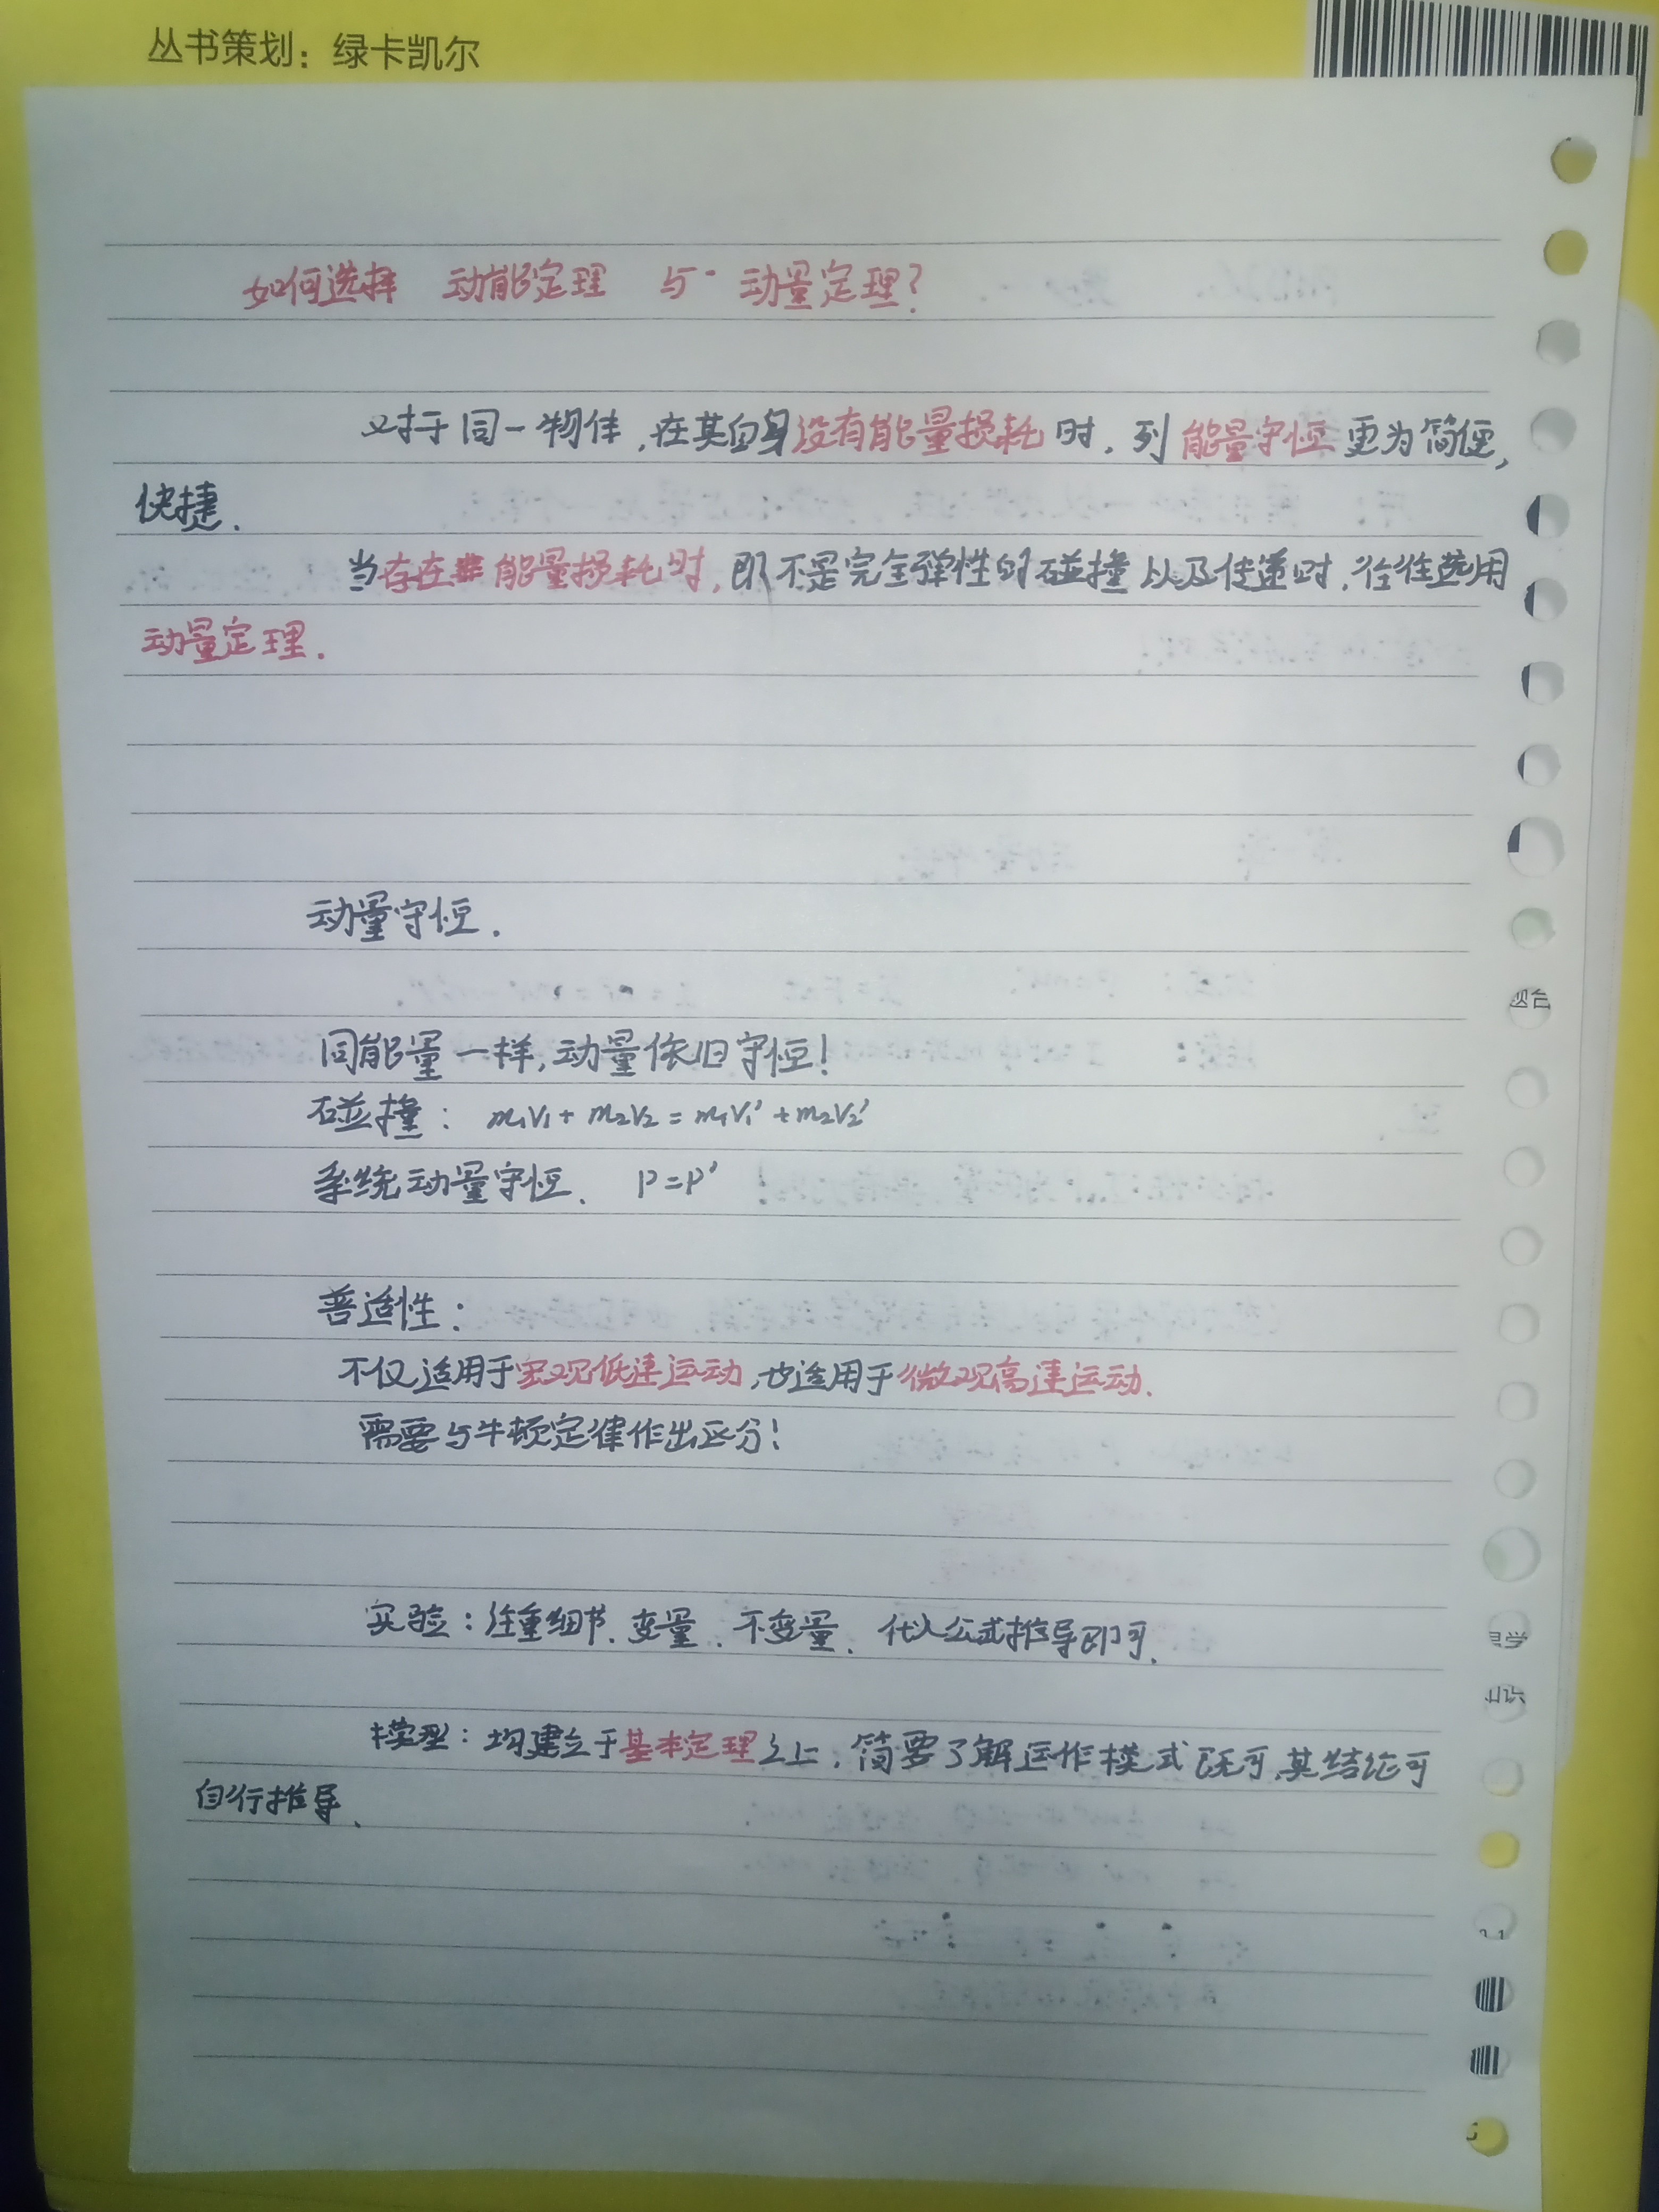 丛书策划：绿卡凯尔
如何选择 动能定理 与 动量定理？
对于同一物体，在其自身没有能量损耗时，列能量守恒更为简便，
快捷．
当存在能量损耗时，即不是完全弹性的碰撞以及传递时，往往选用
动量定理．
动量守恒．
同能量一样，动量依旧守恒！
碰撞： m₁v₁ + m₂v₂ = m₁v₁′ + m₂v₂′
系统动量守恒． P=P′
普适性：
不仅适用于宏观低速运动，也适用于微观高速运动．
需要与牛顿定律作出区分！
实验：注重细节、变量、不变量、代入公式推导即可．
模型：均建立于基本定理之上，简要了解运作模式既可，其结论可
自行推导．